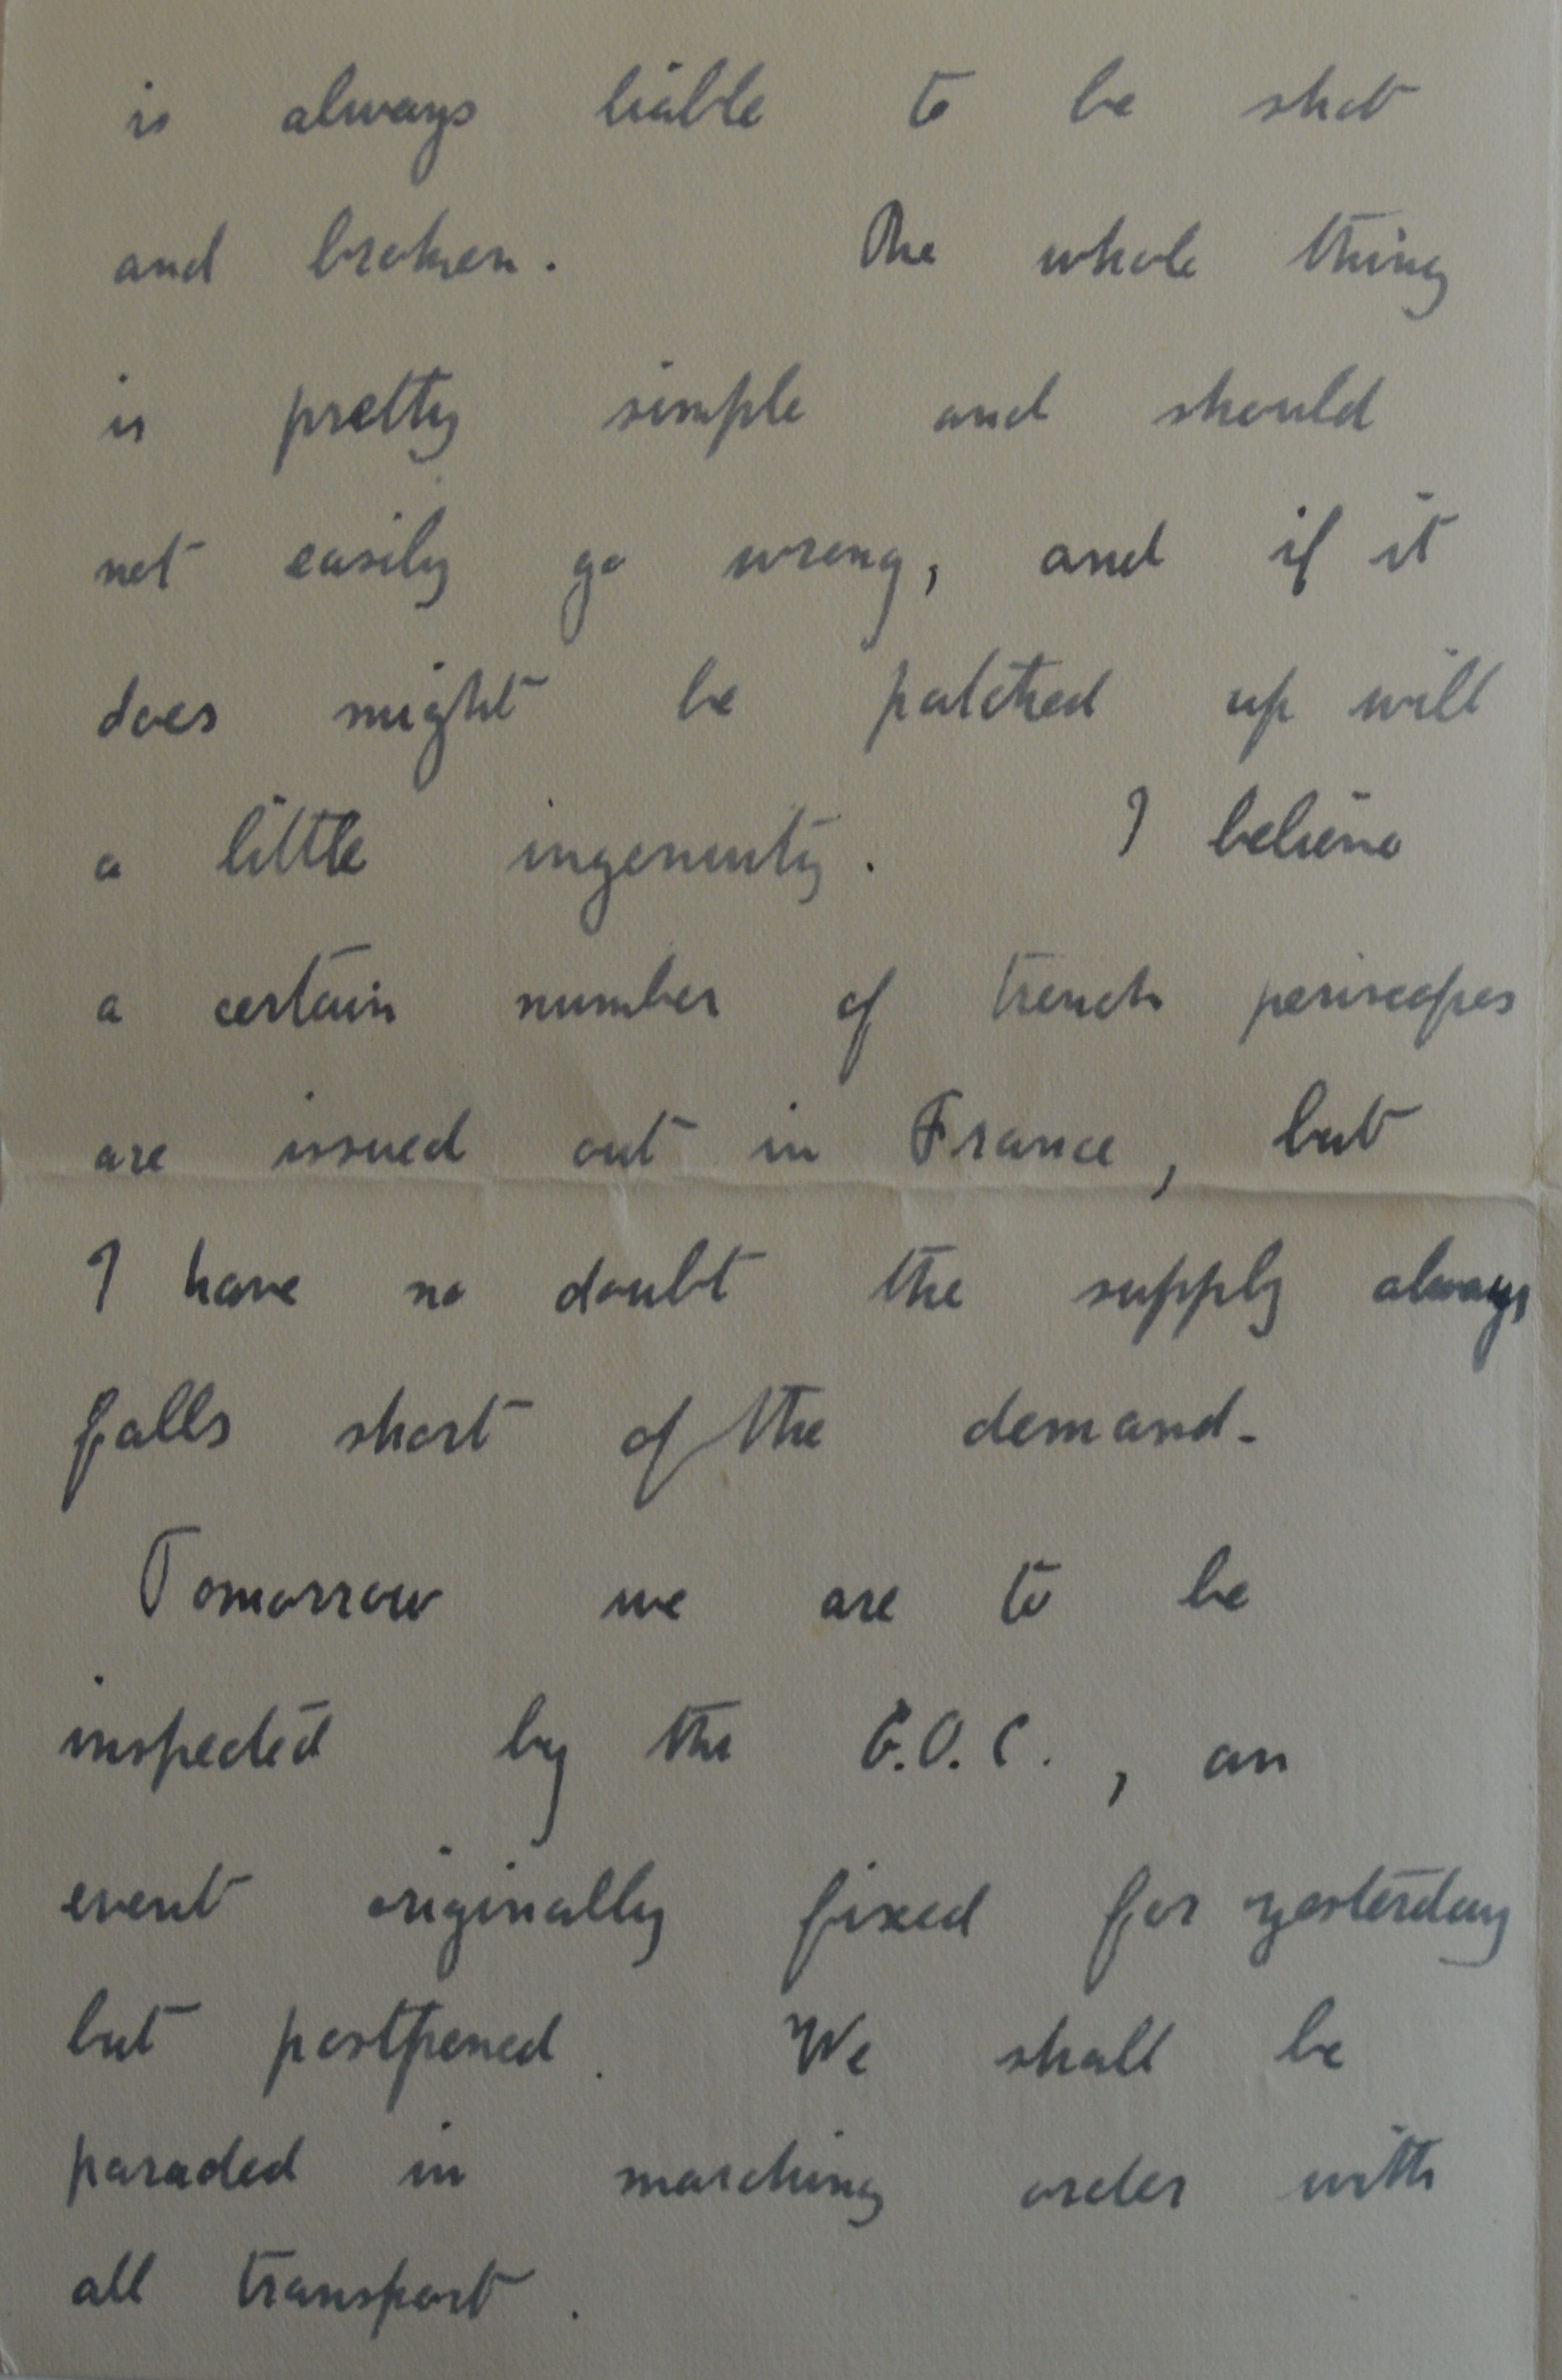 is always liable to be shot
and broken. The whole thing
is pretty simple and should
not easily go wrong, and if it
does might be patched up will
a little ingenuity. I believe
a certain number of trench periscopes
are issued out in France, but
I have no doubt the supply always
falls short of the demand.
Tomorrow we are to be
inspected by the G.O.C., an
event originally fixed for yesterday
but postponed. We shall be
paraded in marching order with
all transport.